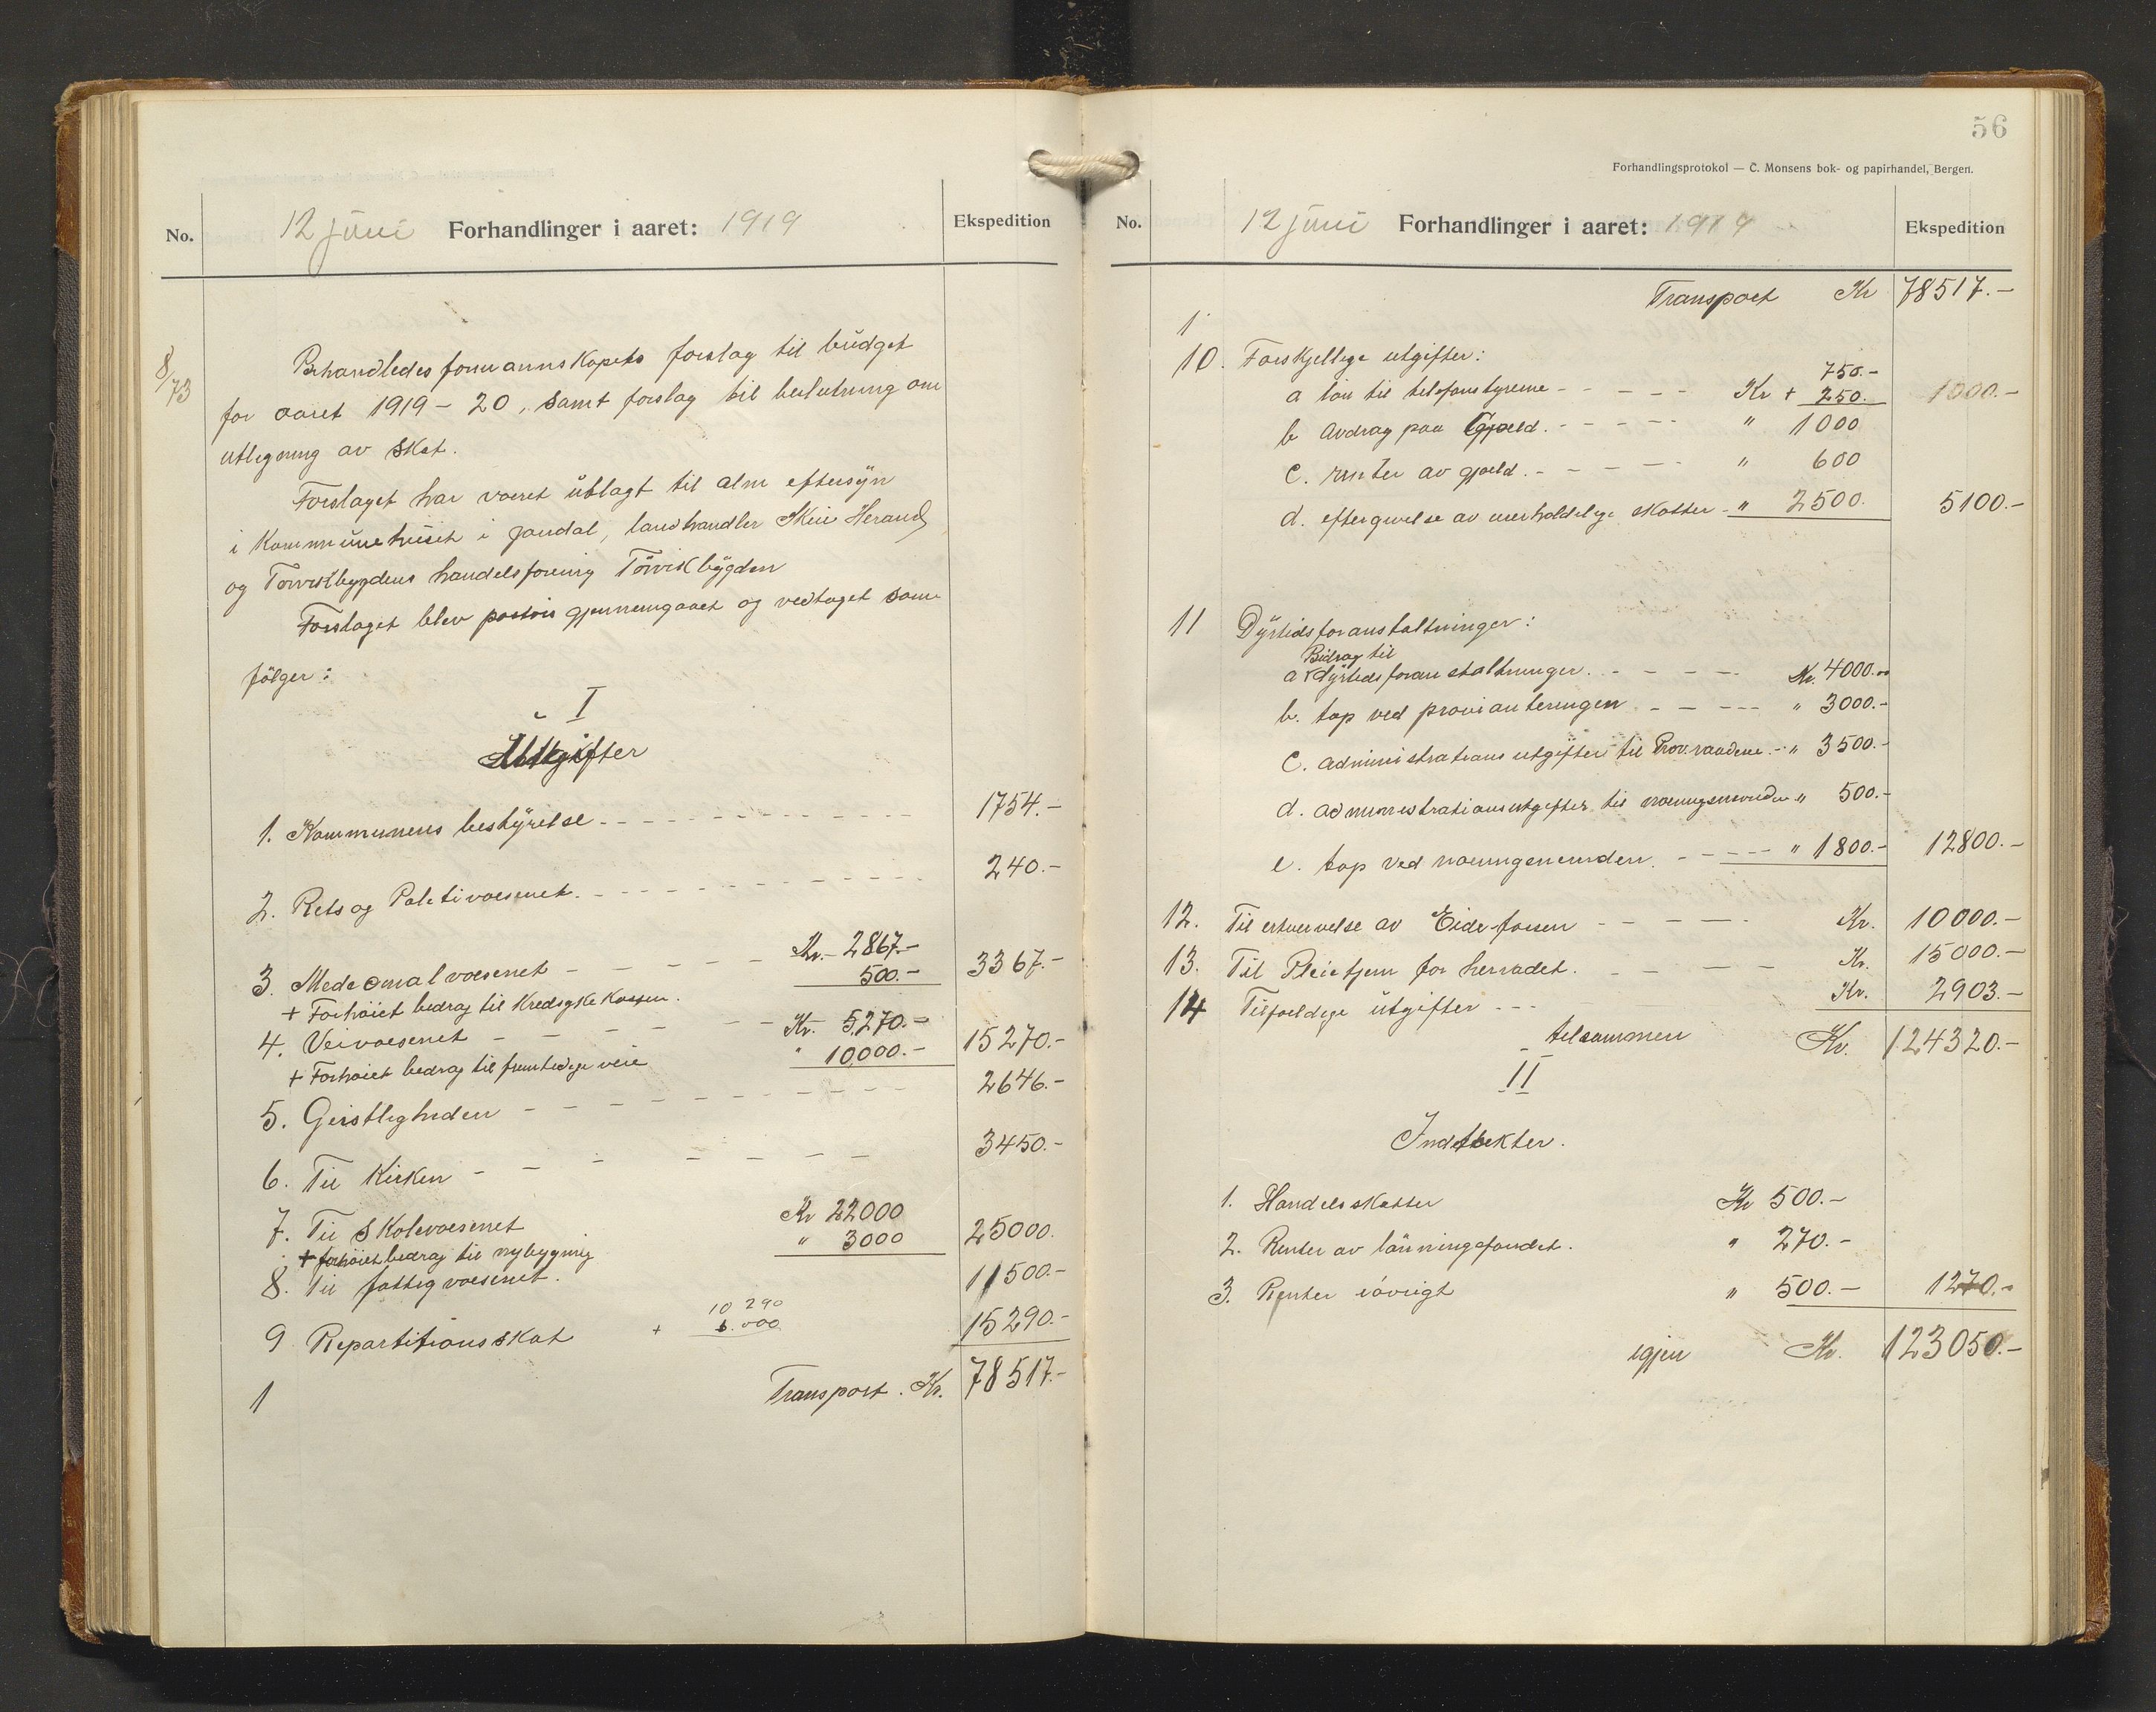 No.
12 juni Forhandlinger i aaret: 1919
Ekspedition
8/73
Behandledes formannskapets forslag til budget
for aaret 1919 - 20, samt forslag til beslutning om
utlegning av skat.
Forslaget har været utlagt til alm eftersyn
i Kommunehuset i Jondal, landhandler Skeie Herand
og Torvikbygdens handelsforening Törvikbygden
Forslaget blev postvis gjennemgaaet og vedtaget som
fölger:
I
Utgifter
1. Kommunens bestyrelse 1754.-
2. Rets og Politivæsenet. 240.-
3. Medecinalvæsenet Kr. 2867.-
+ Forhöiet bedrag til Kredsykekassen. 500.- 3367.-
4. Veivæsenet Kr. 5270.-
+ Forhöiet bedrag til fremtidige veie " 10,000.- 15270.-
5. Geistligheden 2646.-
6. Til Kirken 3450.-
7. Til Skolevæsenet Kr 22000
+ forhöiet bedrag til nybygning " 3000 25000.
8. Til fattigvæsenet. 11500.-
10 290
9 Repartitionsskat + 5.000 15290.-
1 Transport. Kr. 78517.-
56
Forhandlingsprotokol — C. Monsens bok- og papirhandel, Bergen.
No.
12 juni Forhandlinger i aaret: 1919
Ekspedition
Transport Kr 78517.-
1
10. Forskjellige utgifter:
750.-
a lön til telefonstyrerne Kr + 250. 1000.-
b Avdrag paa Gjæld. " 1000
c. renter av gjæld. " 600
d. eftergivelse av uerholdelige skatter " 2500. 5100.-
11 Dyrtidsforanstaltninger:
Bidrag til
a dyrtidsforanstaltninger. Kr. 4000.00
b. tap ved provianteringen " 3000.-
c. administrationsutgifter til Prov.raadene " 3500.-
d. administrationsutgifter til næringsnevnden " 500.-
e. tap ved næringsnevnden. " 1800.- 12800.-
12. Til erhvervelse av Eidefossen Kr. 10000.-
13. Til Pleiehjem for herredet. Kr. 15000.-
14 Tilfældige utgifter Kr. 2903.-
tilsammen Kr. 124320.-
II
Indtækter.
1. Handelsskatter Kr 500.-
2. Renter av lönningsfondet. " 270.-
3. Renter iövrigt " 500.- 1270.-
igjen Kr. 123050.-